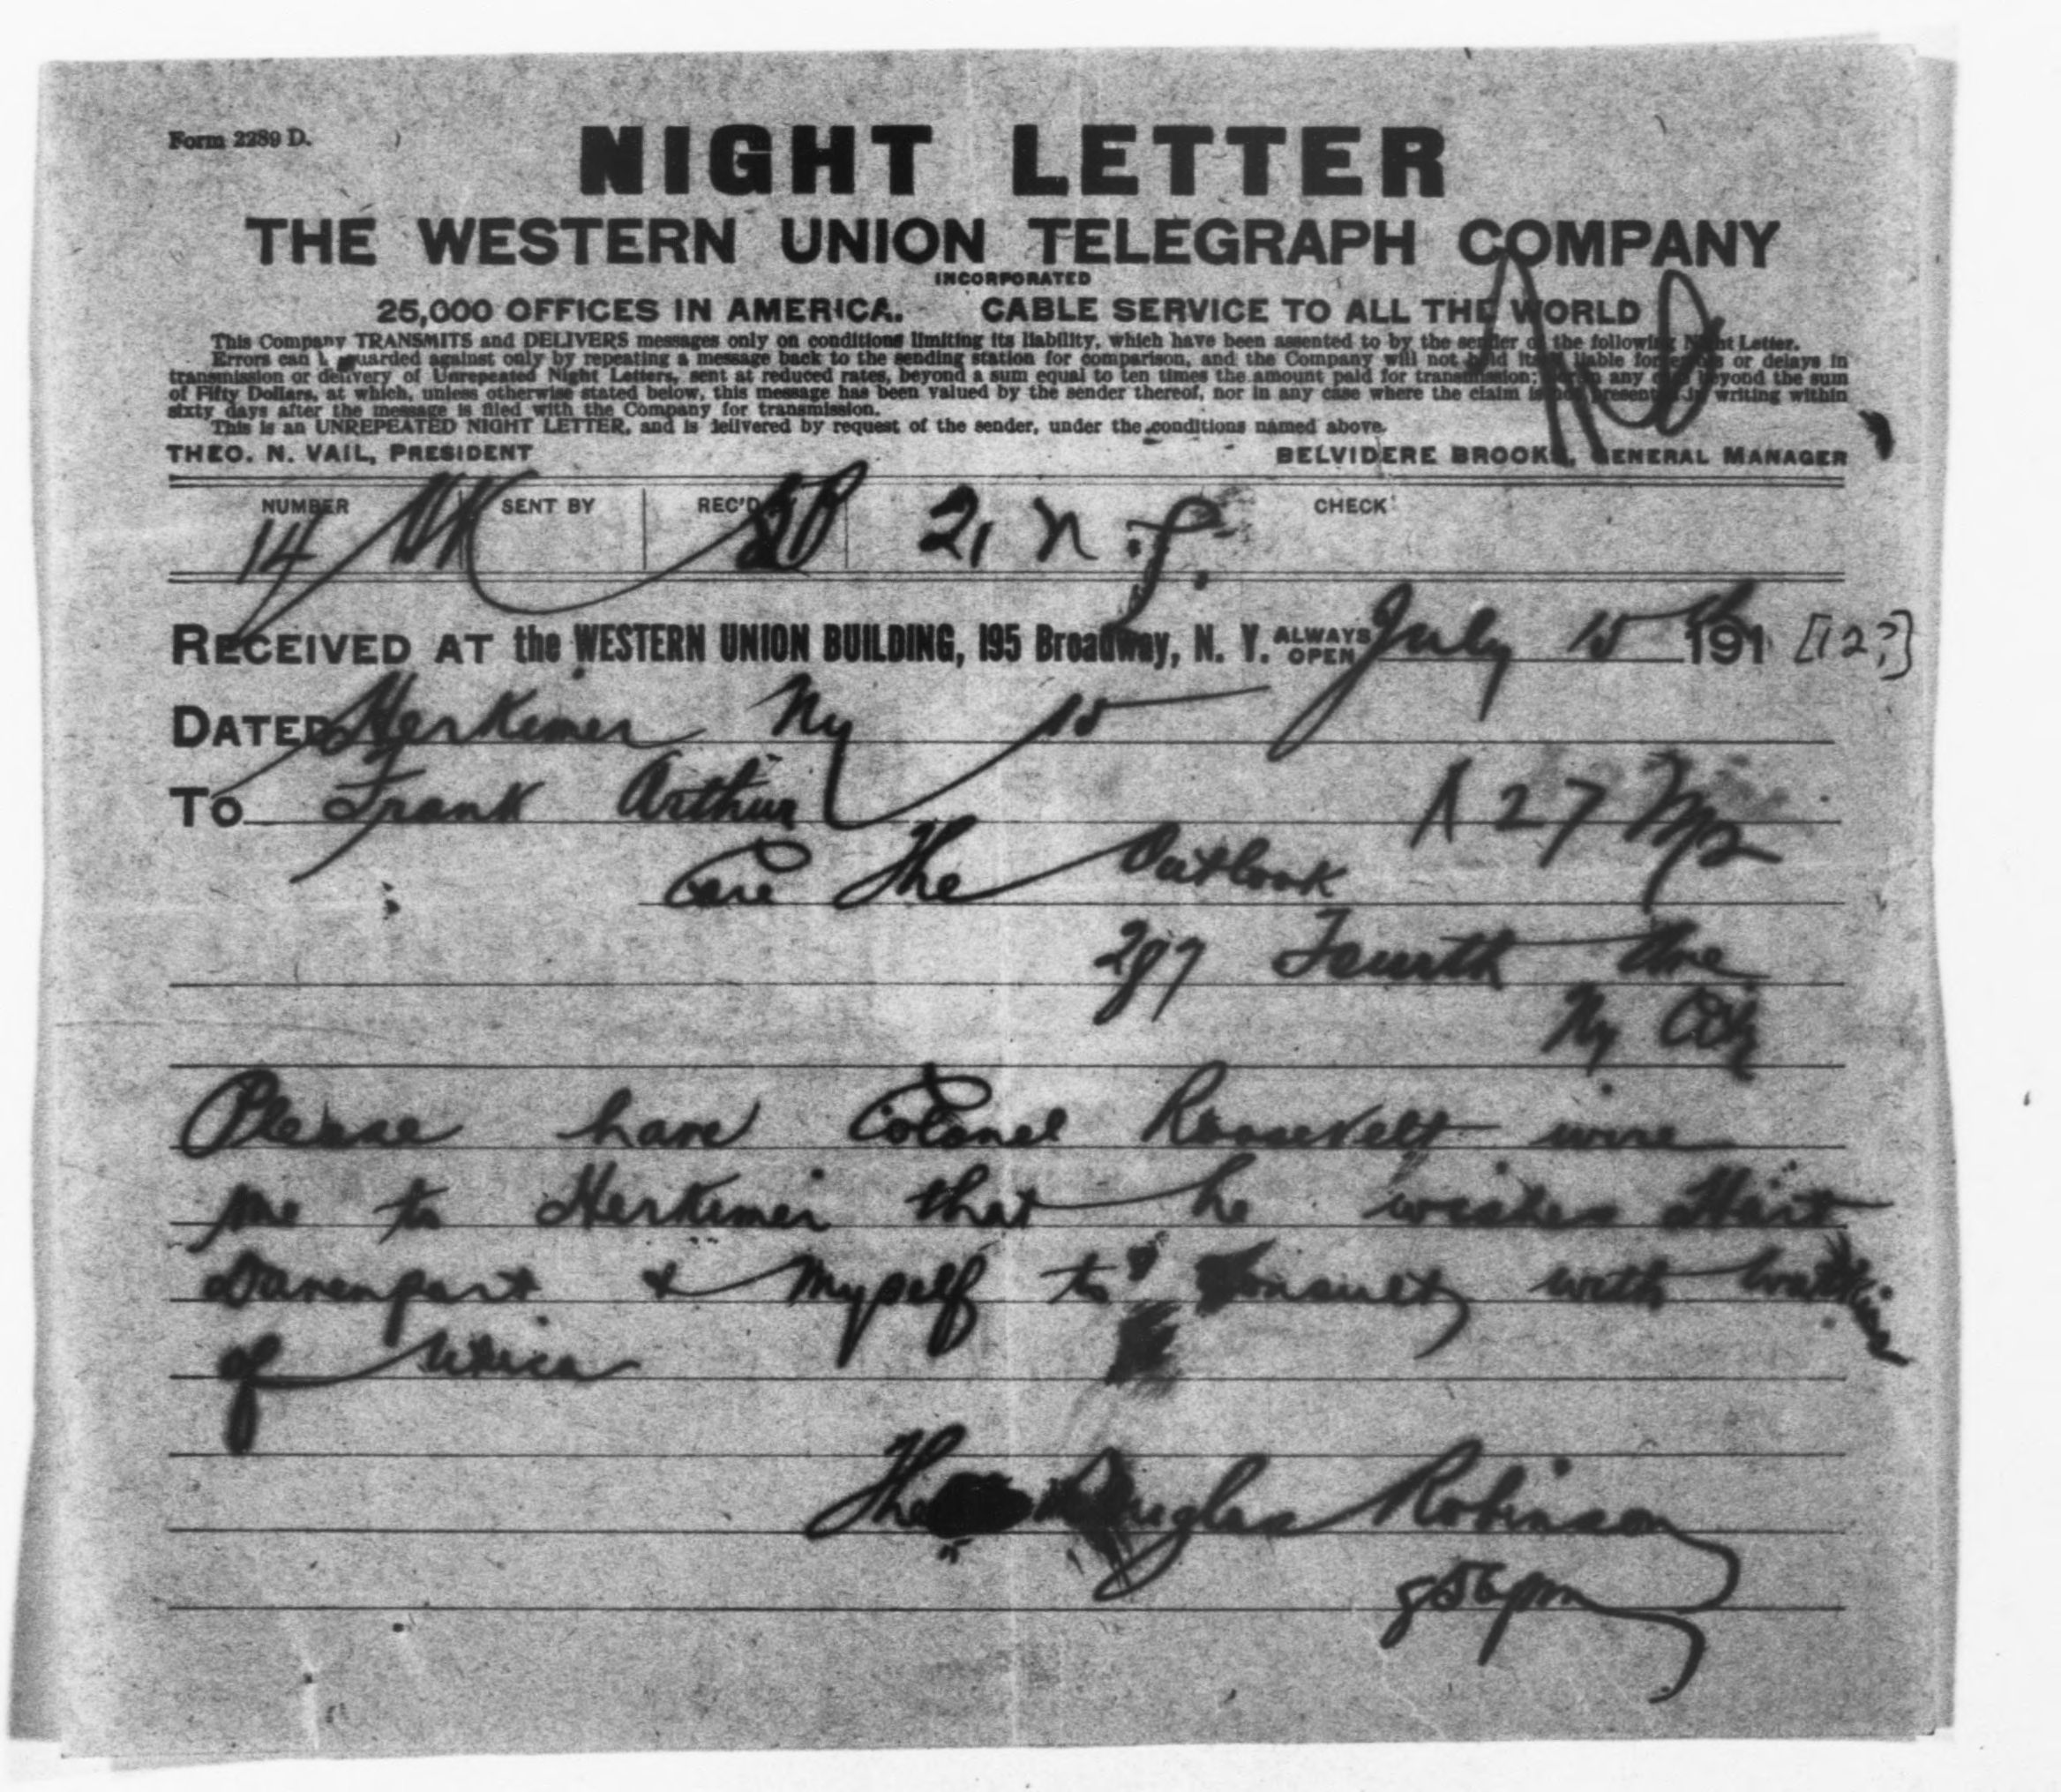 Form 2289 D.
NIGHT LETTER
THE WESTERN UNION TELEGRAPH COMPANY
INCORPORATED
25,000 OFFICES IN AMERICA. CABLE SERVICE TO ALL THE WORLD
This Company TRANSMITS and DELIVERS messages only on conditions limiting its liability, which have been assented to by the sender of the following Night Letter.
Errors can be guarded against only by repeating a message back to the sending station for comparison, and the Company will not hold itself liable for errors or delays in
transmission or delivery of Unrepeated Night Letters, sent at reduced rates, beyond a sum equal to ten times the amount paid for transmission; nor in any case beyond the sum
of Fifty Dollars, at which, unless otherwise stated below, this message has been valued by the sender thereof, nor in any case where the claim is not presented in writing within
sixty days after the message is filed with the Company for transmission.
This is an UNREPEATED NIGHT LETTER, and is delivered by request of the sender, under the conditions named above.
THEO. N. VAIL, PRESIDENT BELVIDERE BROOKS, GENERAL MANAGER
NUMBER SENT BY REC'D CHECK
14 21 N.L.
RECEIVED AT the WESTERN UNION BUILDING, 195 Broadway, N. Y. ALWAYS OPEN July 15th 191 [12?]
DATED Herkimer Ny 15
To Frank Arthur
Care The Outlook
287 Fourth Ave
Ny City
Please have Colonel Roosevelt wire
me to Herkimer that he wishes Hart
Davenport & Myself to consult with
of Utica
Douglas Robinson
856pm